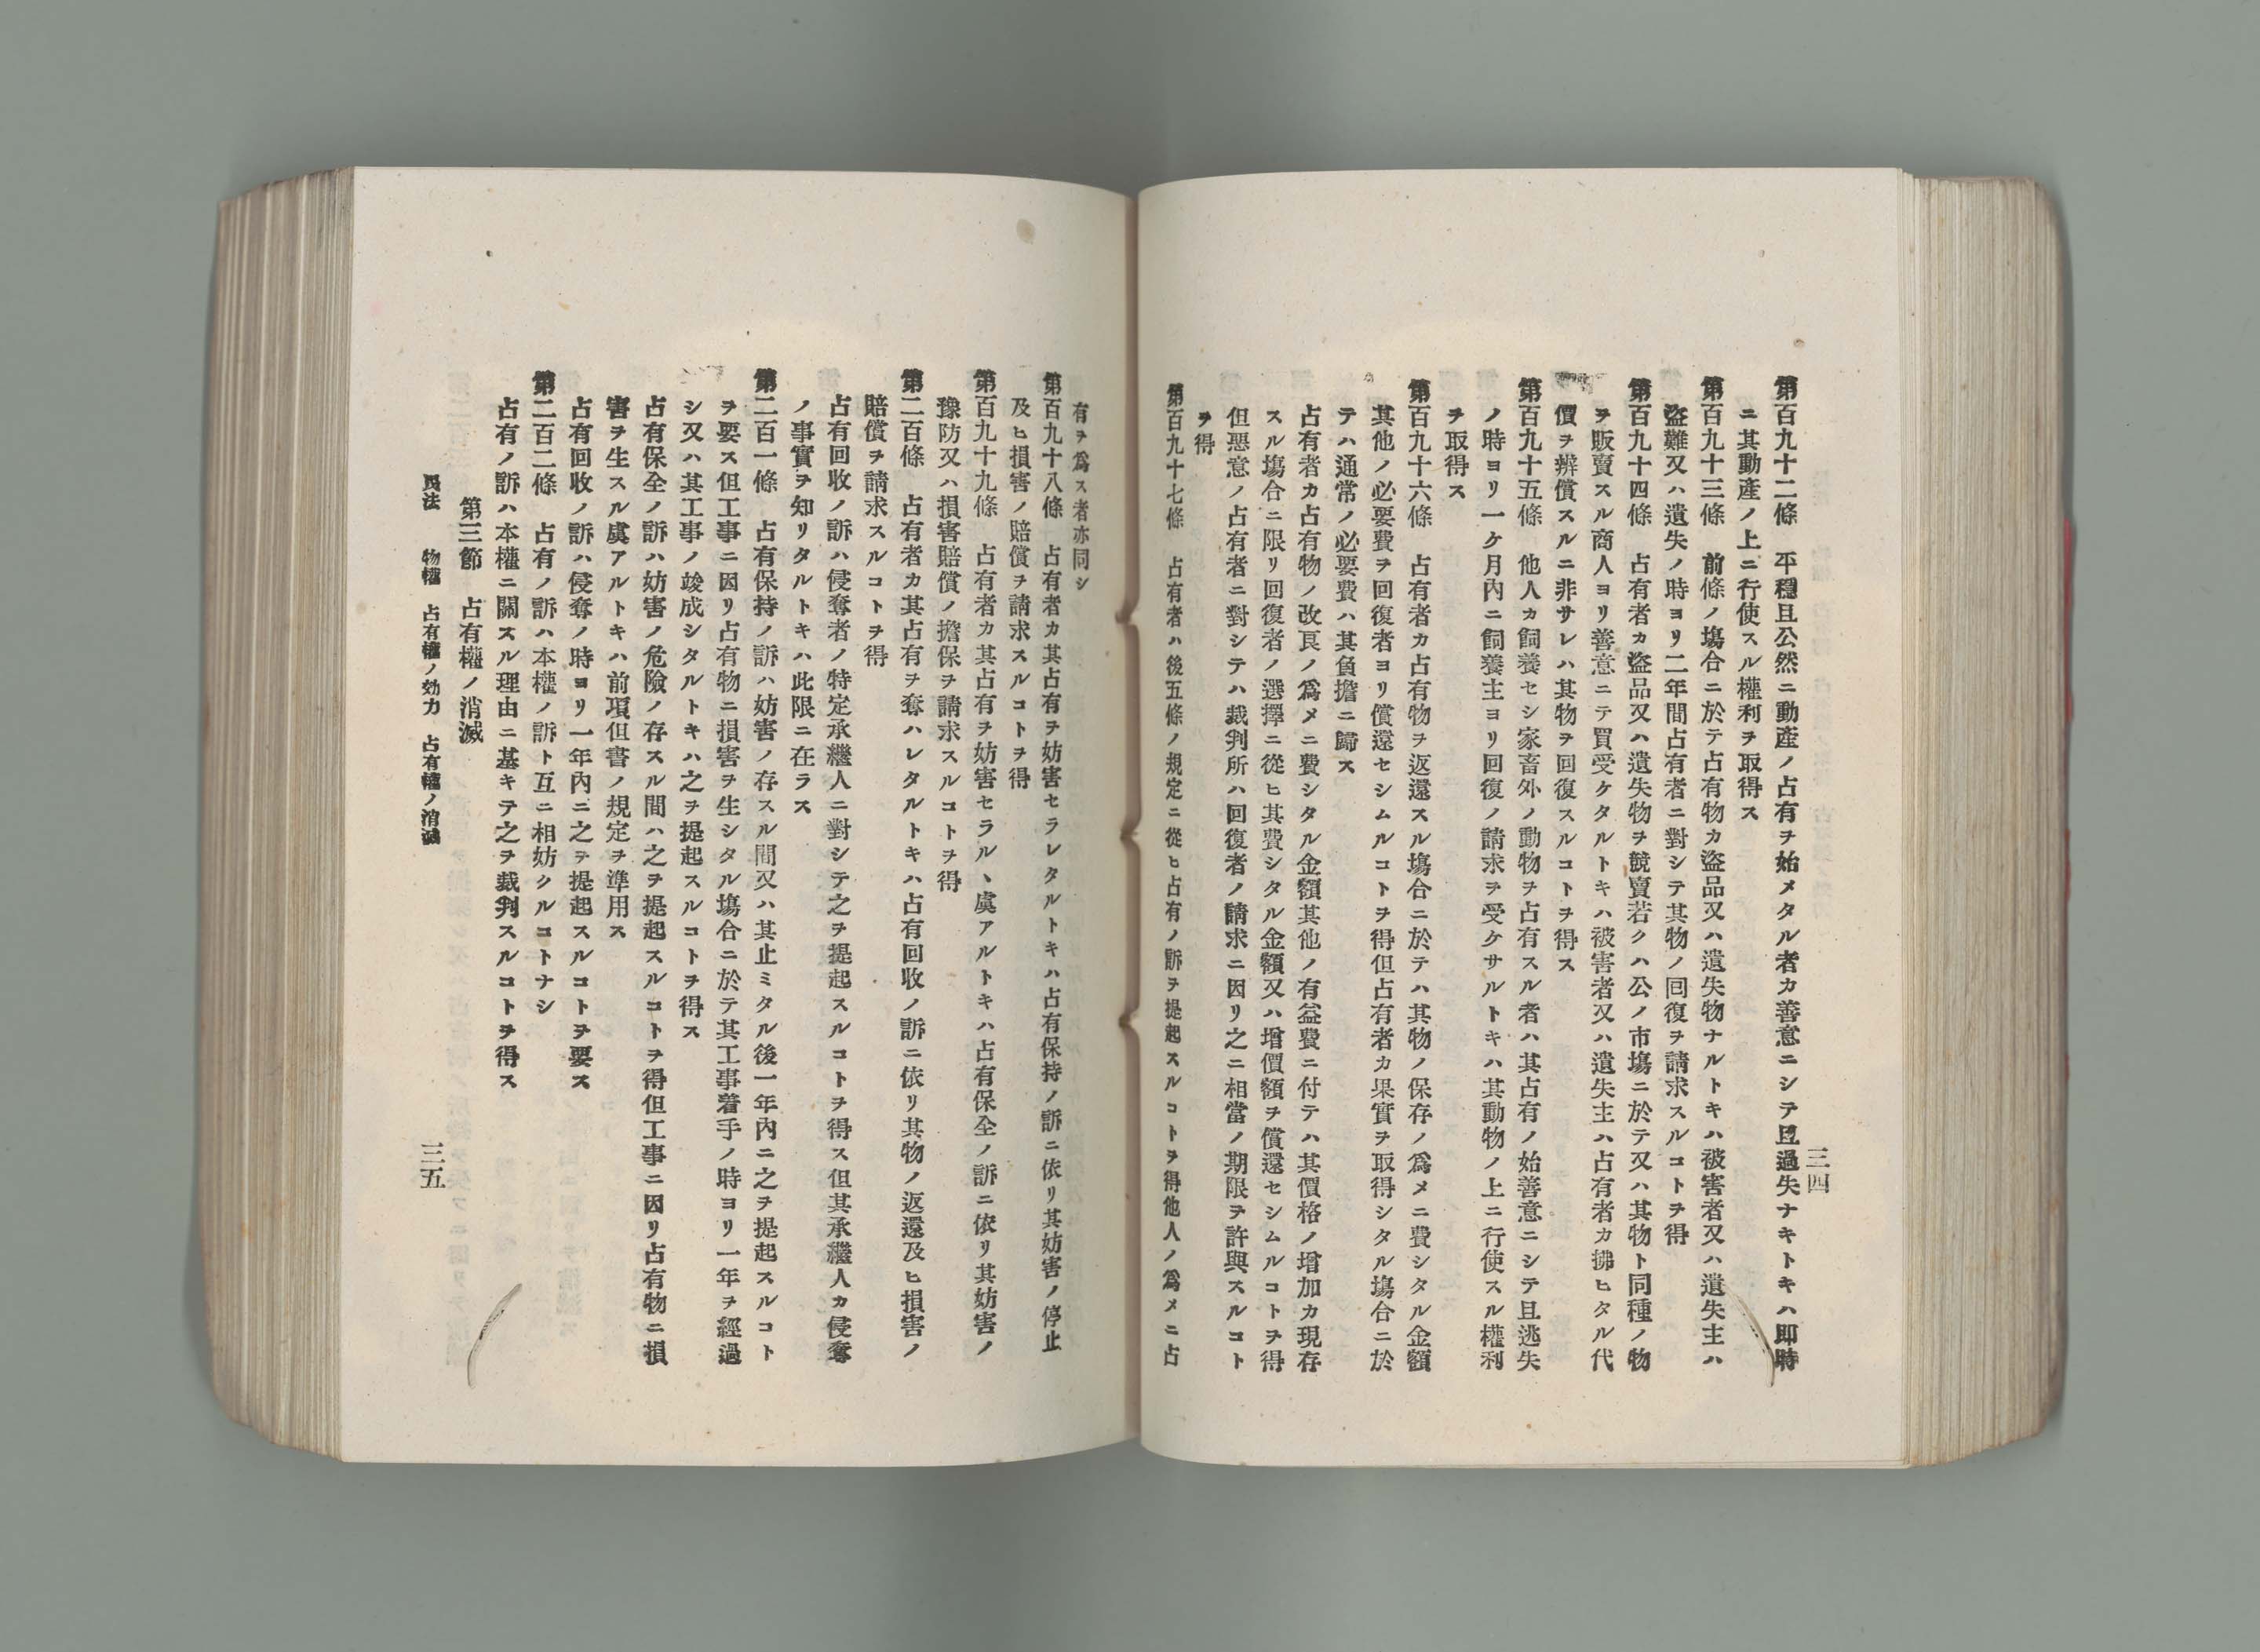 三四
第百九十二條　平穩且公然ニ動產ノ占有ヲ始メタル者カ善意ニシテ且過失ナキトキハ卽時
ニ其動產ノ上ニ行使スル權利ヲ取得ス
第百九十三條　前條ノ塲合ニ於テ占有物カ盜品又ハ遺失物ナルトキハ被害者又ハ遺失主ハ
盜難又ハ遺失ノ時ヨリ二年間占有者ニ對シテ其物ノ回復ヲ請求スルコトヲ得
第百九十四條　占有者カ盜品又ハ遺失物ヲ競賣若クハ公ノ市塲ニ於テ又ハ其物ト同種ノ物
ヲ販賣スル商人ヨリ善意ニテ買受ケタルトキハ被害者又ハ遺失主ハ占有者カ拂ヒタル代
價ヲ辨償スルニ非サレハ其物ヲ回復スルコトヲ得ス
第百九十五條　他人カ飼養セシ家畜外ノ動物ヲ占有スル者ハ其占有ノ始善意ニシテ且逃失
ノ時ヨリ一ケ月內ニ飼養主ヨリ回復ノ請求ヲ受ケサルトキハ其動物ノ上ニ行使スル權利
ヲ取得ス
第百九十六條　占有者カ占有物ヲ返還スル塲合ニ於テハ其物ノ保存ノ爲メニ費シタル金額
其他ノ必要費ヲ回復者ヨリ償還セシムルコトヲ得但占有者カ果實ヲ取得シタル塲合ニ於
テハ通常ノ必要費ハ其負擔ニ歸ス
占有者カ占有物ノ改良ノ爲メニ費シタル金額其他ノ有益費ニ付テハ其價格ノ增加カ現存
スル塲合ニ限リ回復者ノ選擇ニ從ヒ其費シタル金額又ハ增價額ヲ償還セシムルコトヲ得
但惡意ノ占有者ニ對シテハ裁判所ハ回復者ノ請求ニ因リ之ニ相當ノ期限ヲ許與スルコト
ヲ得
第百九十七條　占有者ハ後五條ノ規定ニ從ヒ占有ノ訴ヲ提起スルコトヲ得他人ノ爲メニ占
有ヲ爲ス者亦同シ
第百九十八條　占有者カ其占有ヲ妨害セラレタルトキハ占有保持ノ訴ニ依リ其妨害ノ停止
及ヒ損害ノ賠償ヲ請求スルコトヲ得
第百九十九條　占有者カ其占有ヲ妨害セラルヽ虞アルトキハ占有保全ノ訴ニ依リ其妨害ノ
豫防又ハ損害賠償ノ擔保ヲ請求スルコトヲ得
第二百條　占有者カ其占有ヲ奪ハレタルトキハ占有回收ノ訴ニ依リ其物ノ返還及ヒ損害ノ
賠償ヲ請求スルコトヲ得
占有回收ノ訴ハ侵奪者ノ特定承繼人ニ對シテ之ヲ提起スルコトヲ得ス但其承繼人カ侵奪
ノ事實ヲ知リタルトキハ此限ニ在ラス
第二百一條　占有保持ノ訴ハ妨害ノ存スル間又ハ其止ミタル後一年內ニ之ヲ提起スルコト
ヲ要ス但工事ニ因リ占有物ニ損害ヲ生シタル塲合ニ於テ其工事着手ノ時ヨリ一年ヲ經過
シ又ハ其工事ノ竣成シタルトキハ之ヲ提起スルコトヲ得ス
占有保全ノ訴ハ妨害ノ危險ノ存スル間ハ之ヲ提起スルコトヲ得但工事ニ因リ占有物ニ損
害ヲ生スル虞アルトキハ前項但書ノ規定ヲ準用ス
占有回收ノ訴ハ侵奪ノ時ヨリ一年內ニ之ヲ提起スルコトヲ要ス
第二百二條　占有ノ訴ハ本權ノ訴ト互ニ相妨クルコトナシ
占有ノ訴ハ本權ニ關スル理由ニ基キテ之ヲ裁判スルコトヲ得ス
第三節　占有權ノ消滅
民法　物權　占有權ノ効力　占有權ノ消滅
三五